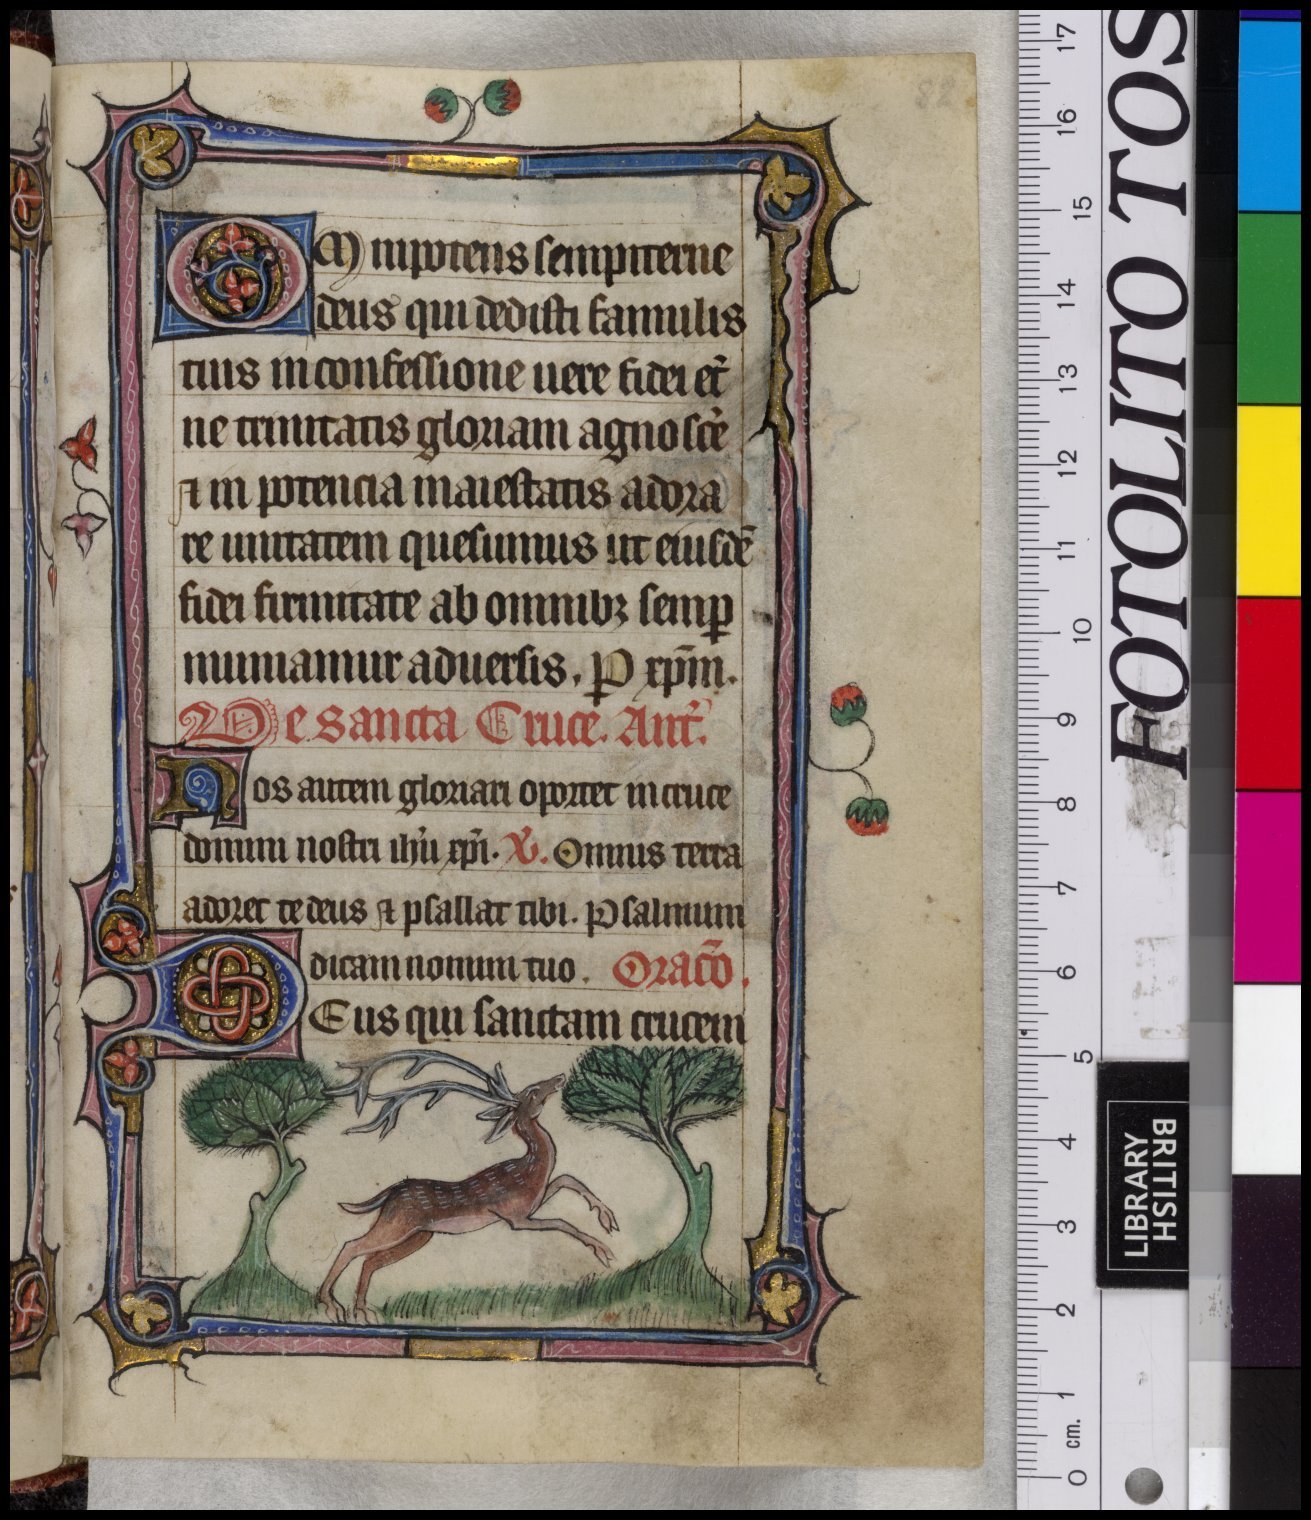 82
Omnipotens sempiterne
deus qui dedisti famulis
tuis in confessione uere fidei et̄
ne trinitatis gloriam agnosce᷒
⁊ in potencia maiestatis adora
re unitatem quesumus ut eiusdē
fidei firmitate ab omnibꝫ semꝑ
muniamur aduersis. P xp̄m.
De sancta Cruce. Ant̄.
Nos autem gloriari oportet in cruce
domini nostri ihū xp̄i. ℣. Omnis terra
adoret te deus ⁊ psallat tibi. Psalmum
dicam nomini tuo. Oracō.
Deus qui sanctam crucem
FOTOLITO TOSO
BRITISH
LIBRARY
0 cm. 1 2 3 4 5 6 7 8 9 10 11 12 13 14 15 16 17